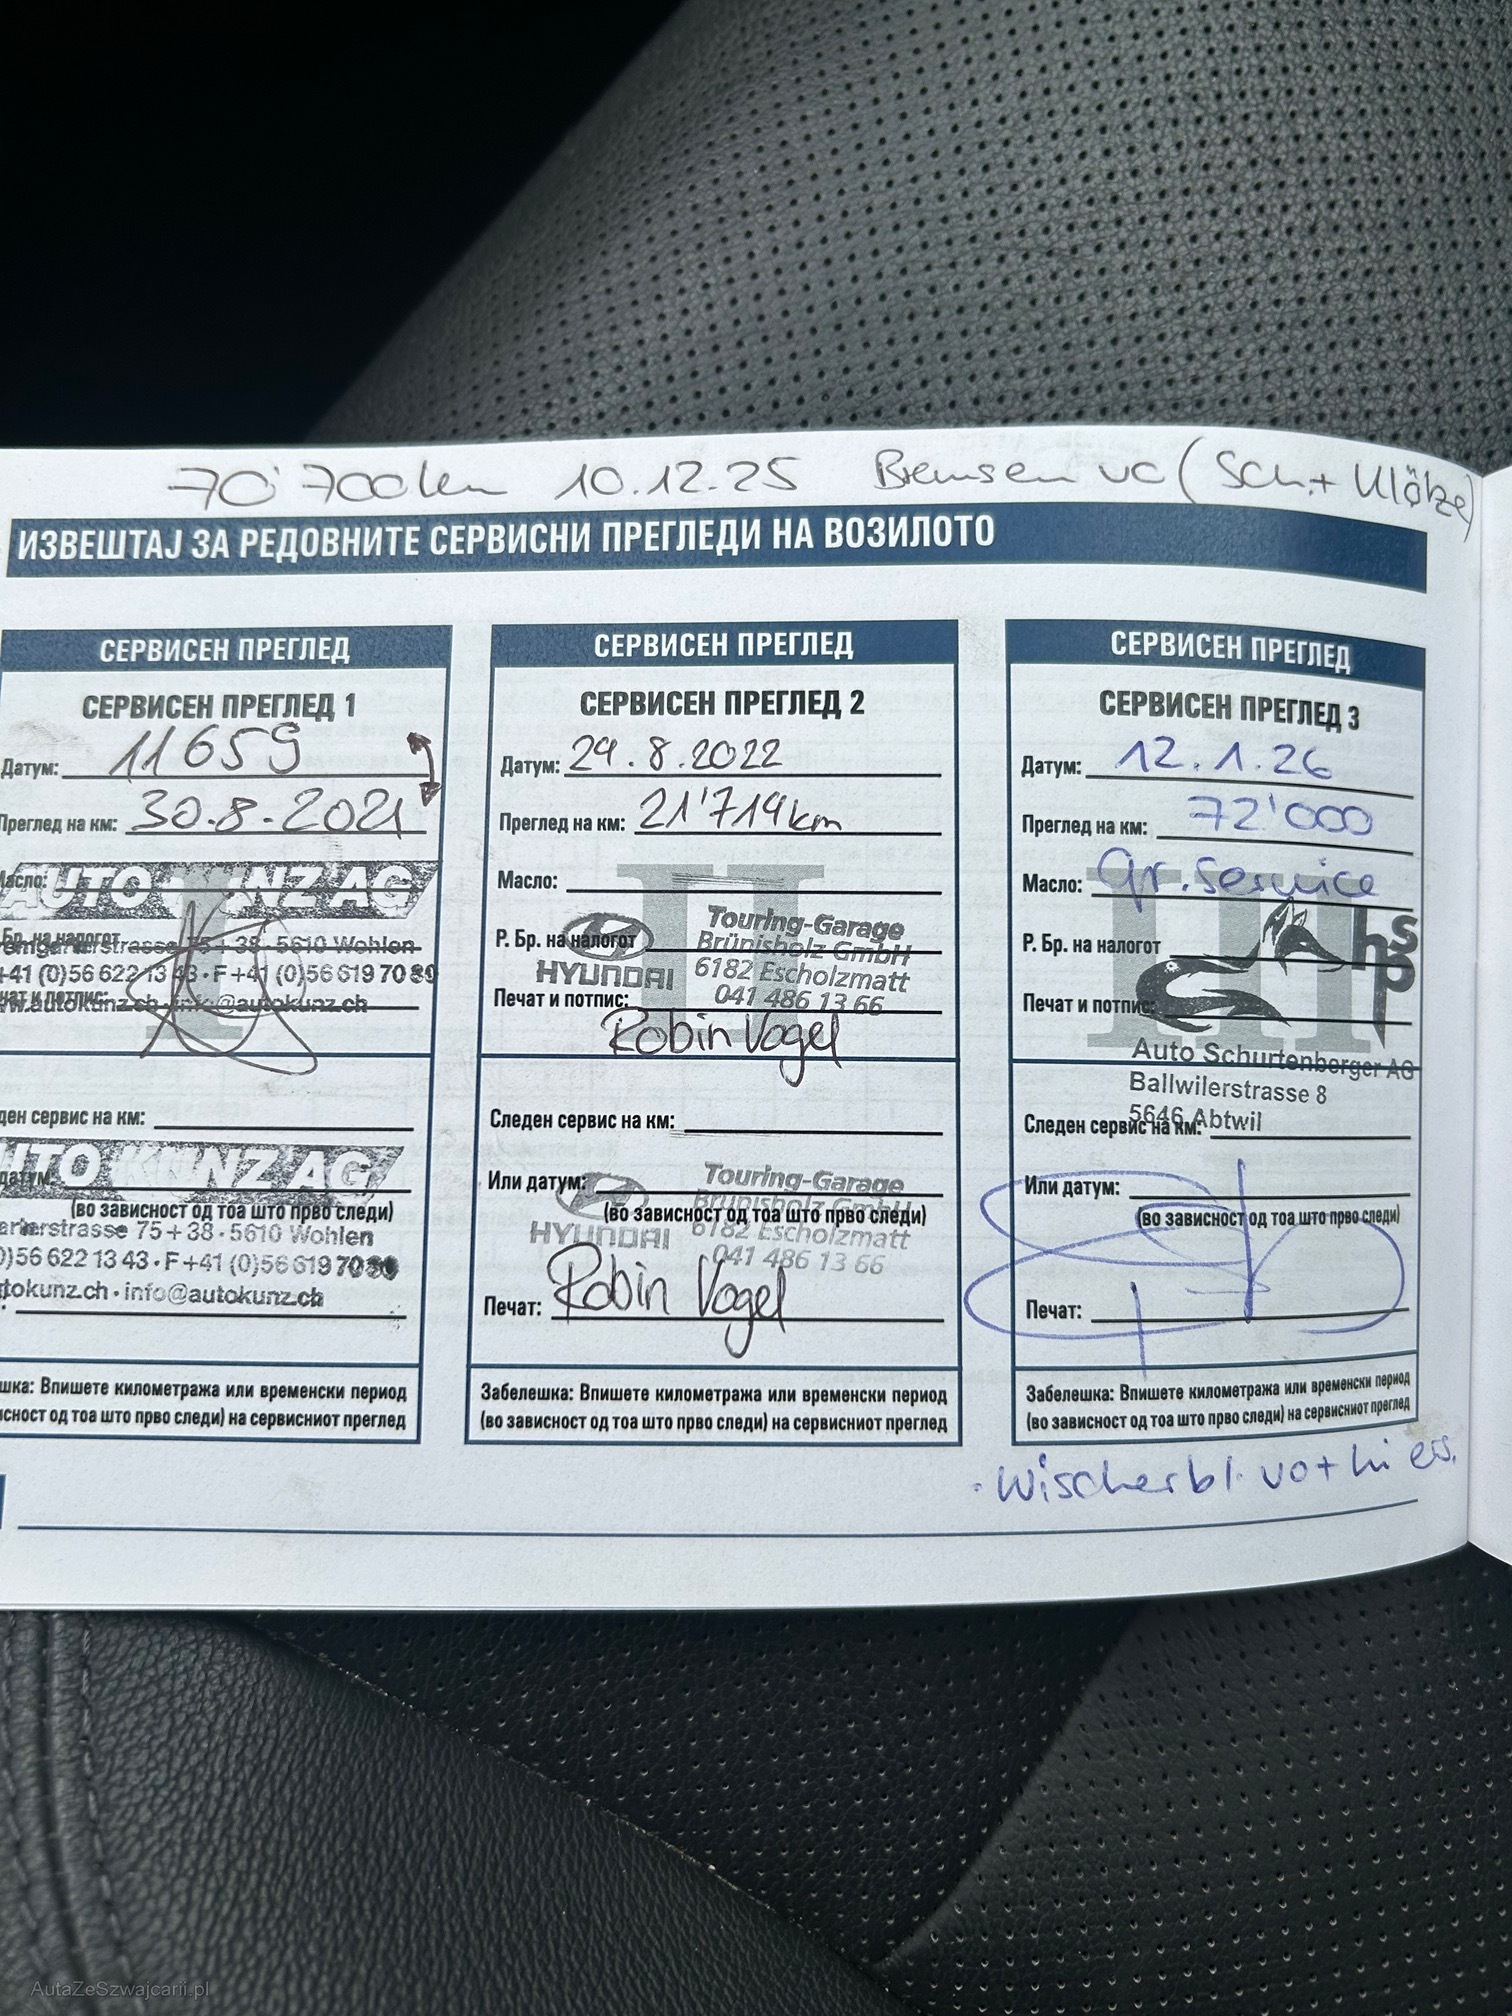 70'700km 10.12.25 Bremsen vo (Sch.+ Klötze)
ИЗВЕШТАЈ ЗА РЕДОВНИТЕ СЕРВИСНИ ПРЕГЛЕДИ НА ВОЗИЛОТО
СЕРВИСЕН ПРЕГЛЕД
СЕРВИСЕН ПРЕГЛЕД 1
Датум: 11659
Преглед на км: 30.8.2021
Масло:
AUTO KUNZ AG
Бр. на налогот
75+38 · 5610 Wohlen
+41 (0)56 622 13 43 · F +41 (0)56 619 70 80
www.autokunz.ch · info@autokunz.ch
ден сервис на км:
UTO KUNZ AG
датум:
(во зависност од тоа што прво следи)
arterstrasse 75+38 · 5610 Wohlen
)56 622 13 43 · F +41 (0)56 619 70 80
tokunz.ch · info@autokunz.ch
шка: Впишете километража или временски период
сност од тоа што прво следи) на сервисниот преглед
СЕРВИСЕН ПРЕГЛЕД
СЕРВИСЕН ПРЕГЛЕД 2
Датум: 29.8.2022
Преглед на км: 21'719km
Масло:
II
Р. Бр. на налогот
HYUNDAI
Touring-Garage
Brünisholz GmbH
6182 Escholzmatt
041 486 13 66
Печат и потпис:
Robin Vogel
Следен сервис на км:
Или датум:
(во зависност од тоа што прво следи)
HYUNDAI
Touring-Garage
Brünisholz GmbH
6182 Escholzmatt
041 486 13 66
Печат: Robin Vogel
Забелешка: Впишете километража или временски период
(во зависност од тоа што прво следи) на сервисниот преглед
СЕРВИСЕН ПРЕГЛЕД
СЕРВИСЕН ПРЕГЛЕД 3
Датум: 12.1.26
Преглед на км: 72'000
Масло: Gr. Service
III
Р. Бр. на налогот
hsp
Печат и потпис:
Auto Schurtenberger AG
Ballwilerstrasse 8
5646 Abtwil
Следен сервис на км:
Или датум:
(во зависност од тоа што прво следи)
Печат:
Забелешка: Впишете километража или временски период
(во зависност од тоа што прво следи) на сервисниот преглед
· Wischerbl. vo + hi ers.
AutaZeSzwajcarii.pl